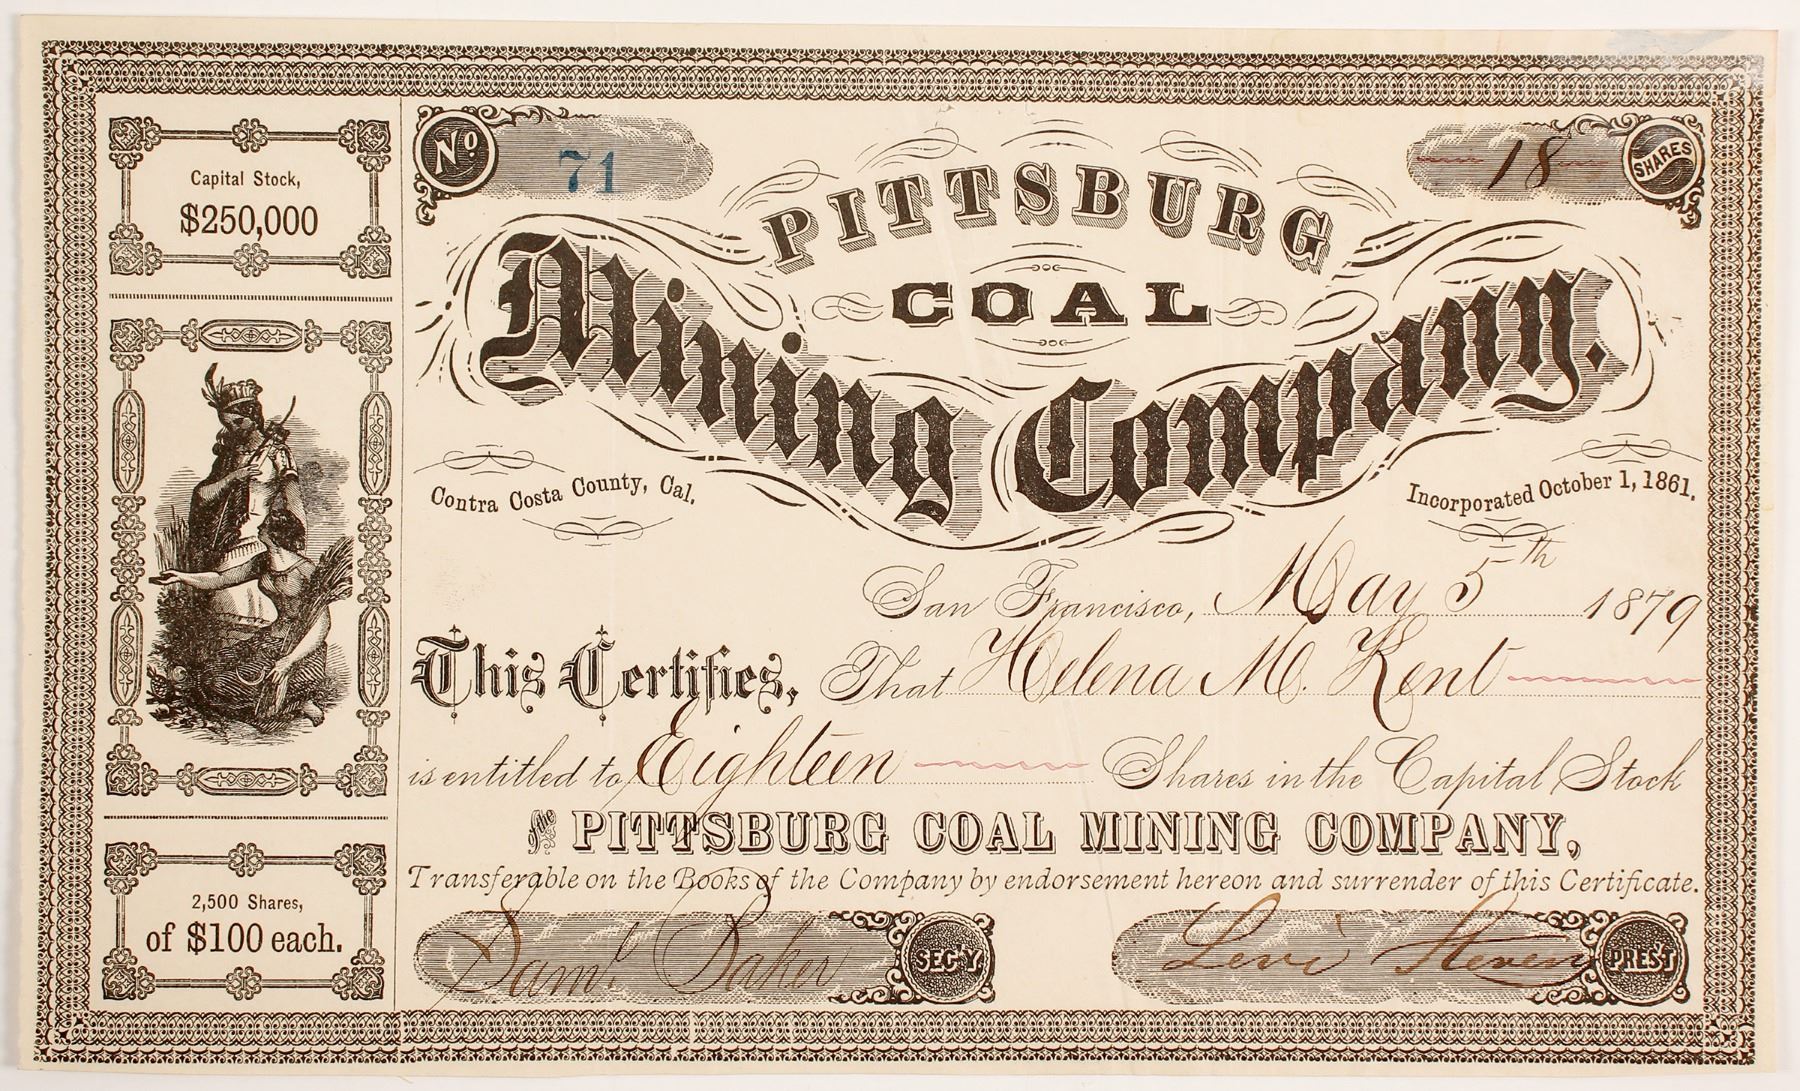 Capital Stock,
$250,000
2,500 Shares,
of $100 each.
No. 71
18 SHARES
PITTSBURG
COAL
Mining Company.
Contra Costa County, Cal.
Incorporated October 1, 1861.
San Francisco, May 5th 1879
This Certifies, That Helena M. Kent
is entitled to Eighteen Shares in the Capital Stock
of the PITTSBURG COAL MINING COMPANY,
Transferable on the Books of the Company by endorsement hereon and surrender of this Certificate.
Saml Baker SEC'Y
Levi Steven PREST